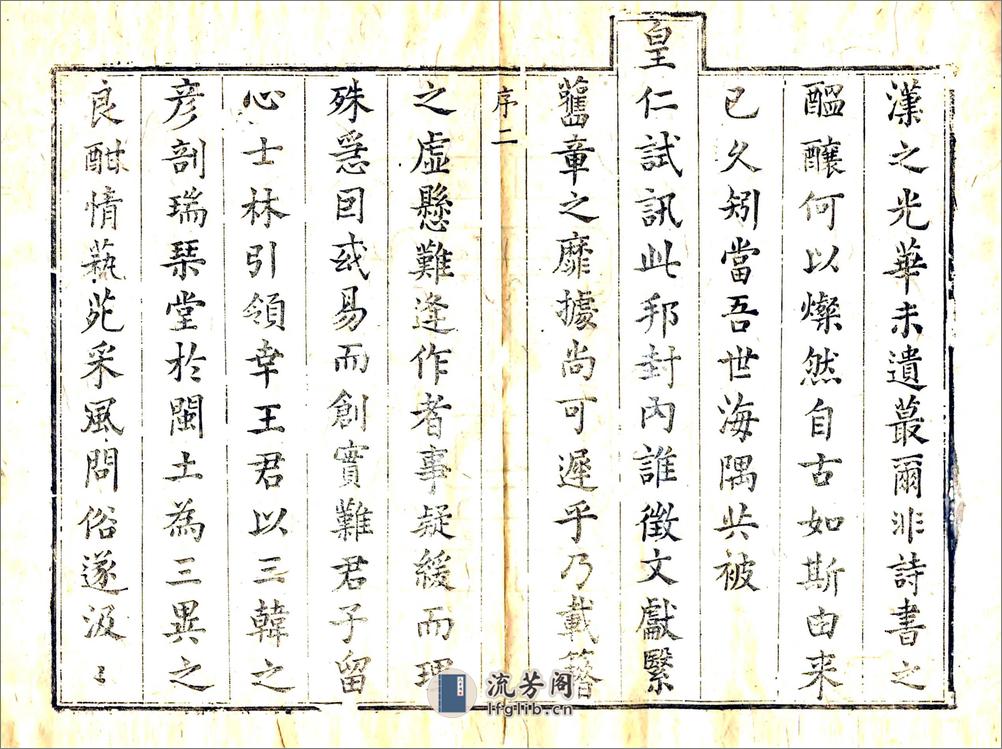 漢之光華未遺蕞爾非詩書之
醞釀何以燦然自古如斯由来
已久矧當吾世海隅共被
皇仁試訊此邦封內誰徵文獻繄
舊章之靡據尚可遲乎乃載簪
序二
之虛懸難逢作者事疑緩而理
殊急因或易而創實難君子留
心士林引領幸王君以三韓之
彦剖瑞琹堂於閩土為三異之
良酣情藝苑采風問俗遂汲〻
流芳阁
lfglib.cn